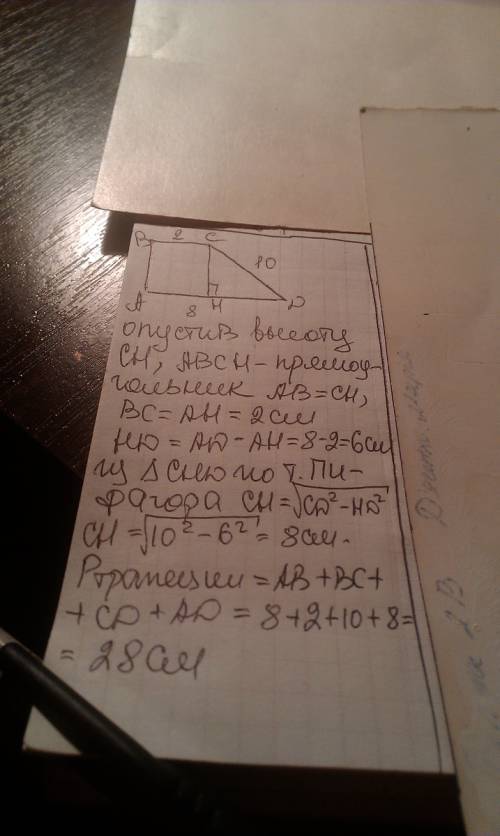 B 2 C
10
A 8 H D
опустив высоту
CH, ABCH - прямоу-
гольник AB = CH,
BC = AH = 2 см
HD = AD - AH = 8-2 = 6 см
из Δ CHD по т. Пи-
фагора CH = √CD² - HD²
CH = √10² - 6² = 8 см.
Pтрапеции = AB + BC +
+ CD + AD = 8+2+10+8=
= 28 см
2 B